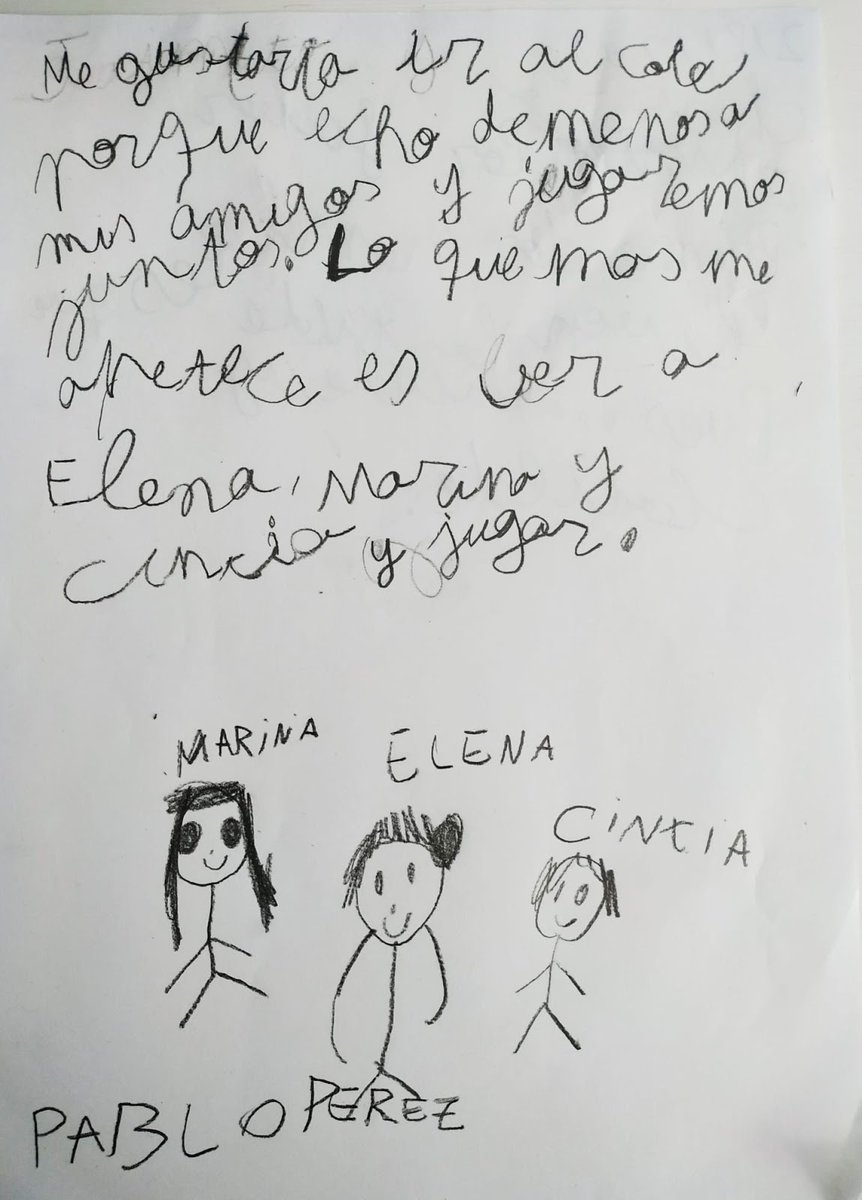 Me gustaría ir al cole
porque echo demenosa
mis amigos y jugaremos
juntos. Lo que mas me
apetece es ver a
Elena, Marina y
Cincia y jugar.
MARINA
ELENA
CINTIA
PABLO PEREZ